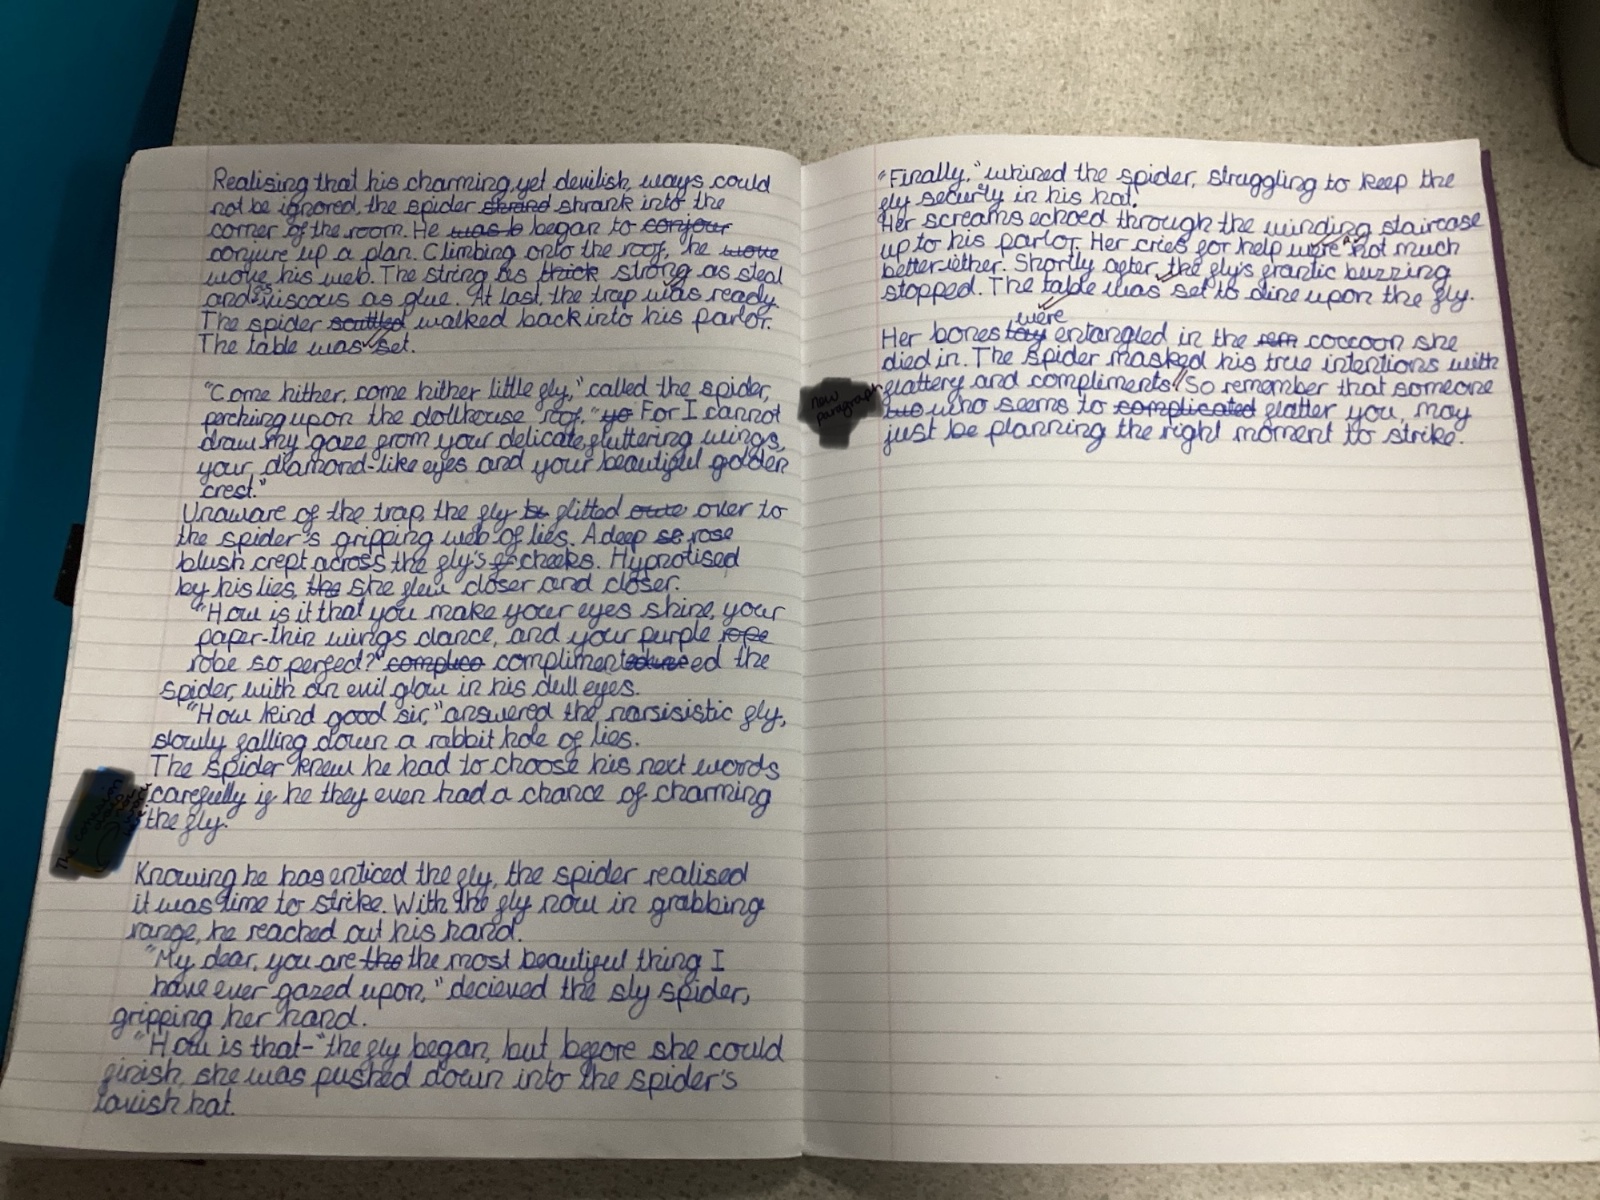 Realising that his charming, yet devilish, ways could
not be ignored, the spider shrank into the
corner of the room. He began to conjour
conjure up a plan. Climbing onto the roof, he wove
wove his web. The string as thick strong as steal
and as viscous as glue. At last, the trap was ready.
The spider scuttled walked back into his parlor.
The table was set.
"Come hither, come hither little fly," called the spider,
perching upon the dollhouse roof, "yo For I cannot
draw my gaze from your delicate, fluttering wings,
your, diamond-like eyes and your beautiful golden
crest."
Unaware of the trap, the fly flitted over to
the spider's gripping web of lies. A deep se rose
blush crept across the fly's cheeks. Hypnotised
by his lies, the she flew closer and closer.
"How is it that you make your eyes shine, your
paper-thin wings dance, and your purple rope
robe so perfect?" complico complimented the
spider, with an evil glow in his dull eyes.
"How kind good sir," answered the narsisistic fly,
slowly falling down a rabbit hole of lies.
The spider knew he had to choose his next words
carefully if he they even had a chance of charming
the fly.
Knowing he has enticed the fly, the spider realised
it was time to strike. With the fly now in grabbing
range, he reached out his hand.
"My dear, you are the the most beautiful thing I
have ever gazed upon," decieved the sly spider,
gripping her hand.
"How is that-" the fly began, but before she could
finish, she was pushed down into the spider's
lavish hat.
"Finally," whined the spider, struggling to keep the
fly securly in his hat.
Her screams echoed through the winding staircase
up to his parlor. Her cries for help were not much
better iether. Shortly after, the fly's frantic buzzing
stopped. The table was set to dine upon the fly.
were
Her bones entangled in the rem coccoon she
died in. The spider masked his true intentions with
new
paragraph
flattery and compliments. So remember that someone
who seems to complicated flatter you, may
just be planning the right moment to strike.